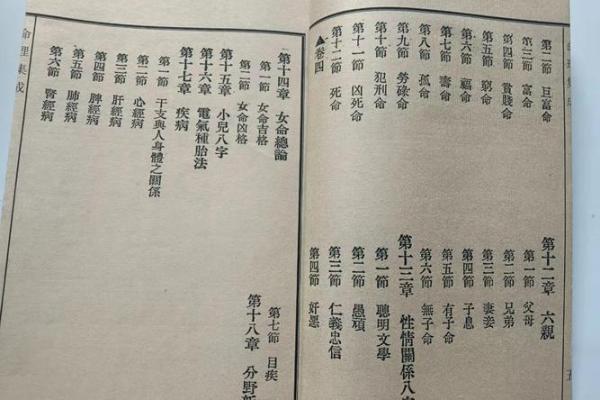 第二節 巨富命
第三節 富命
第四節 貧賤命
第五節 窮命
第六節 福命
第七節 壽命
第八節 孤命
第九節 勞碌命
第十節 犯刑命
第十一節 凶死命
第十二節 死命
▲卷四
第十二章 六親
第一節 父母
第二節 兄弟
第三節 妻妾
第四節 子息
第五節 有子命
第六節 無子命
第十三章 性情關係八
第一節 聰明文學
第二節 愚頑
第三節 仁義忠信
第四節 奸惡
第十四章 女命總論
第一節 女命吉格
第二節 女命凶格
第十五章 小兒八字
第十六章 電氣種胎法
第十七章 疾病
第一節 干支與人身體之關係
第二節 心經病
第三節 肝經病
第四節 脾經病
第五節 肺經病
第六節 腎經病
第七節 目疾
第十八章 分野
命理集成